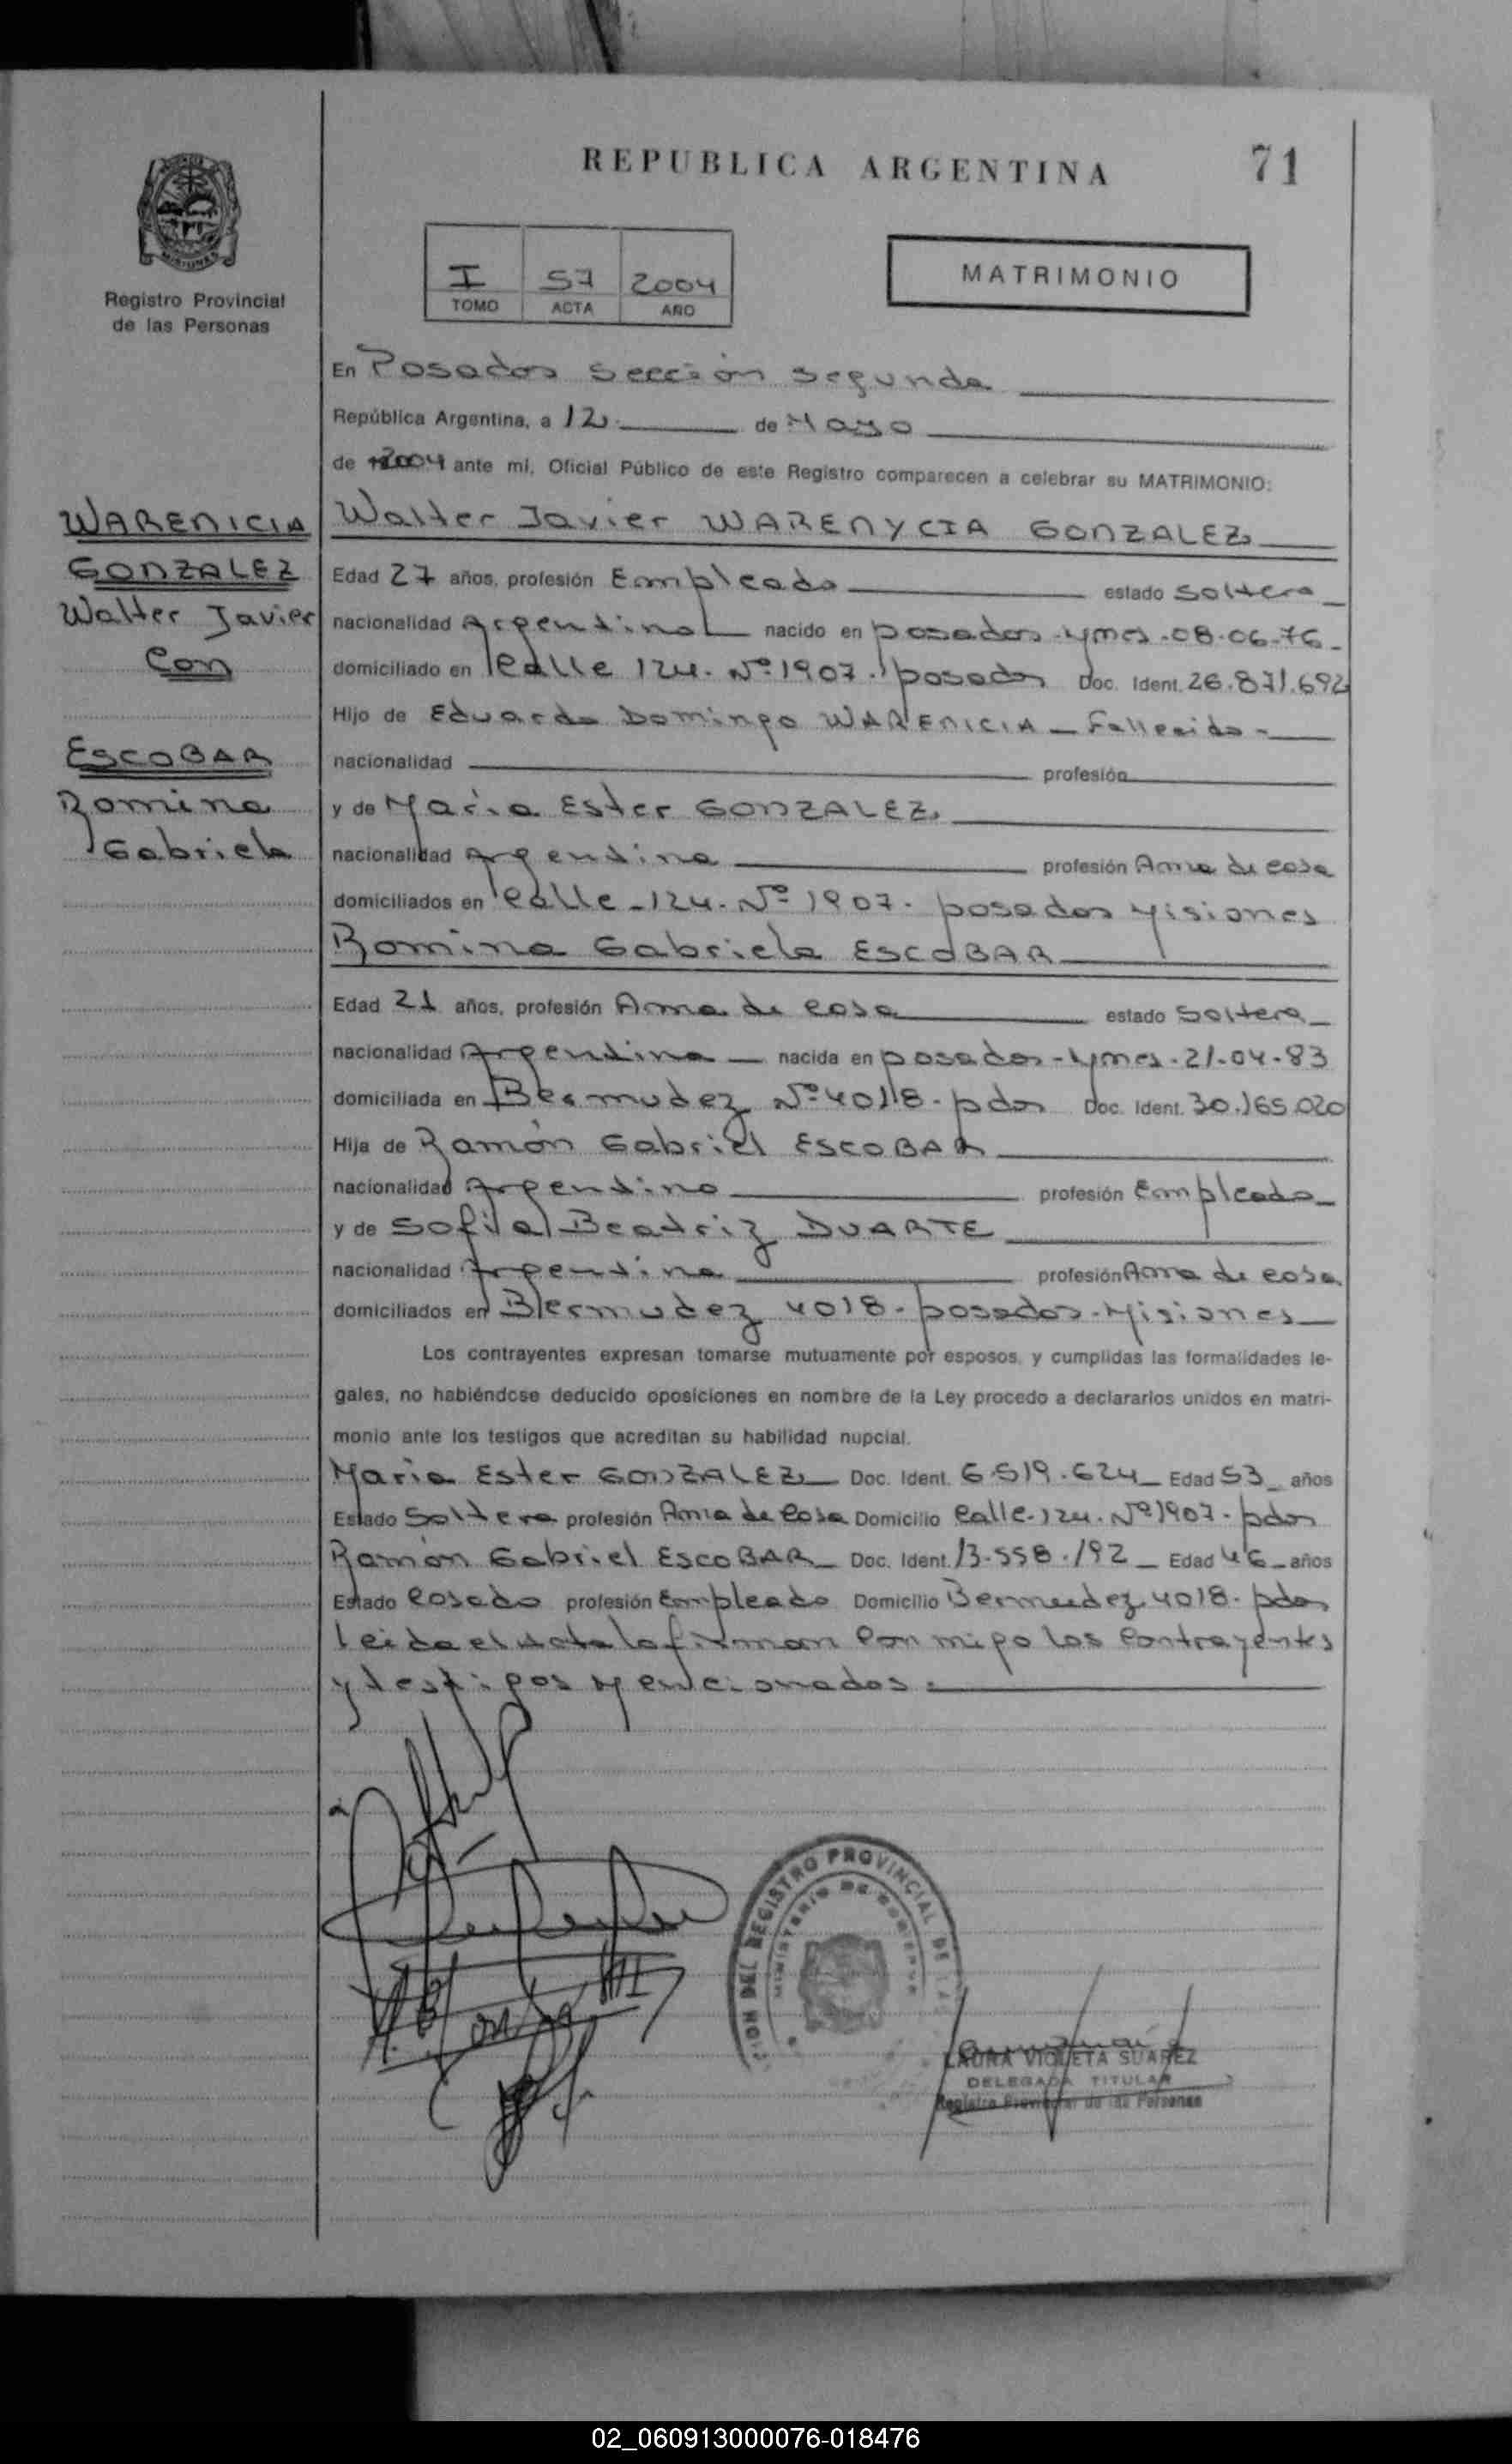 REPUBLICA ARGENTINA
71
MISIONES
Registro Provincial
de las Personas
I 57 2004
TOMO ACTA AÑO
MATRIMONIO
En Posadas Sección Segunda
República Argentina, a 12 de Mayo
de 2004 ante mí, Oficial Público de este Registro comparecen a celebrar su MATRIMONIO:
WARENICIA
GONZALEZ
Walter Javier
Con
ESCOBAR
Romina
Gabriela
Walter Javier WARENYCIA GONZALEZ
Edad 27 años, profesión Empleado estado Soltero
nacionalidad Argentina nacido en posadas - Mnes - 08-06-76
domiciliado en Calle 124. Nº 1907. posadas Doc. Ident. 26.871.692
Hijo de Eduardo Domingo WARENICIA - Fallecido -
nacionalidad profesión
y de María Ester GONZALEZ
nacionalidad Argentina profesión Ama de casa
domiciliados en Calle - 124. Nº 1907. posadas Misiones
Romina Gabriela ESCOBAR
Edad 21 años, profesión Ama de casa estado Soltera
nacionalidad Argentina nacida en posadas - Mnes - 21-04-83
domiciliada en Bermudez Nº 4018 - pdas Doc. Ident. 30.165.020
Hija de Ramón Gabriel ESCOBAR
nacionalidad Argentino profesión Empleado
y de Sofia Beatriz DUARTE
nacionalidad Argentina profesión Ama de casa
domiciliados en Bermudez 4018 - posadas - Misiones
Los contrayentes expresan tomarse mutuamente por esposos, y cumplidas las formalidades le-
gales, no habiéndose deducido oposiciones en nombre de la Ley procedo a declararlos unidos en matri-
monio ante los testigos que acreditan su habilidad nupcial.
Maria Ester GONZALEZ Doc. Ident. 6.519.624 Edad 53 años
Estado Soltera profesión Ama de Casa Domicilio Calle - 124. Nº 1907 - pdas
Ramón Gabriel ESCOBAR Doc. Ident. 13.558.192 Edad 46 años
Estado Casado profesión Empleado Domicilio Bermudez 4018 - pdas
Leida el Acta la firman Conmigo los Contrayentes
y testigos Mencionados.
REGISTRO PROVINCIAL DE LAS
MINISTERIO DE GOBIERNO
LAURA VIOLETA SUAREZ
DELEGADA TITULAR
Registro Provincial de las Personas
02_060913000076-018476